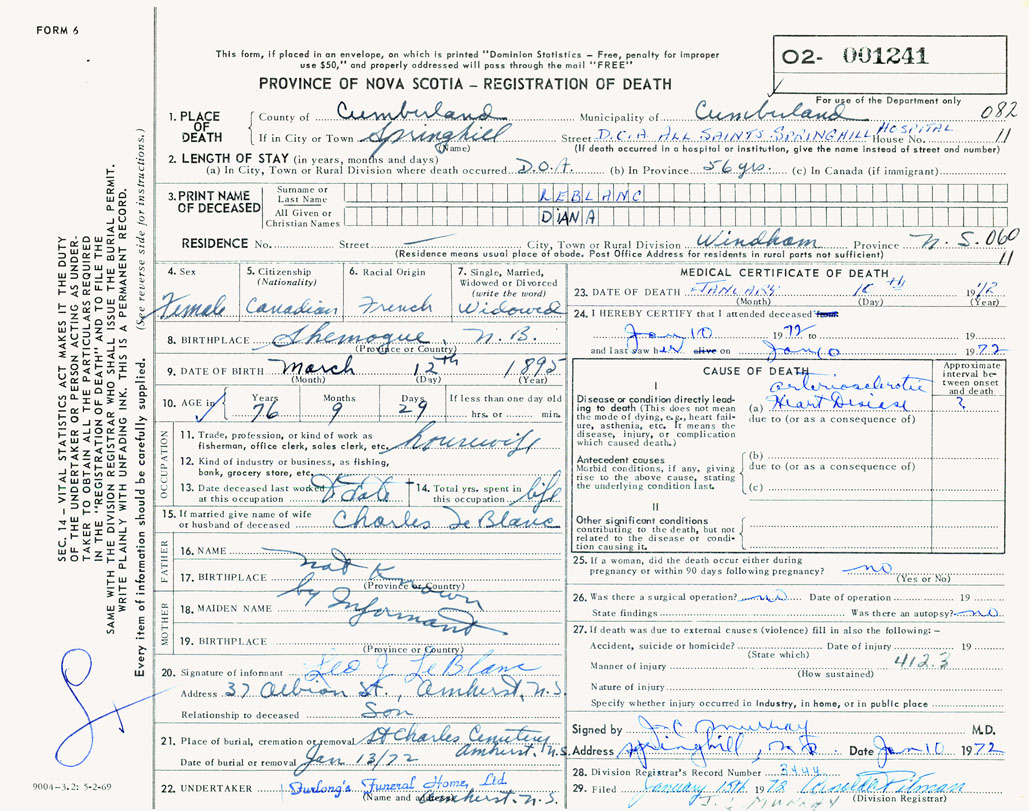 FORM 6
This form, if placed in an envelope, on which is printed "Dominion Statistics – Free, penalty for improper
use $50," and properly addressed will pass through the mail "FREE"
PROVINCE OF NOVA SCOTIA – REGISTRATION OF DEATH
02- 001241
For use of the Department only
082
11
1. PLACE OF DEATH
County of Cumberland Municipality of Cumberland
If in City or Town Springhill Street D.O.A ALL SAINTS SPRINGHILL HOSPITAL House No.
(Name) (If death occurred in a hospital or institution, give the name instead of street and number)
2. LENGTH OF STAY (in years, months and days)
(a) In City, Town or Rural Division where death occurred D.O.A. (b) In Province 56 yrs. (c) In Canada (if immigrant)
3. PRINT NAME OF DECEASED
Surname or Last Name LEBLANC
All Given or Christian Names DIANA
RESIDENCE No. Street — City, Town or Rural Division Windham Province N.S. 060
(Residence means usual place of abode. Post Office Address for residents in rural parts not sufficient) 11
4. Sex Female
5. Citizenship (Nationality) Canadian
6. Racial Origin French
7. Single, Married, Widowed or Divorced (write the word) Widowed
8. BIRTHPLACE Shemogue, N.B.
(Province or Country)
9. DATE OF BIRTH March 12th 1895
(Month) (Day) (Year)
10. AGE in Years 76 Months 9 Days 29 If less than one day old hrs. or min.
OCCUPATION
11. Trade, profession, or kind of work as fisherman, office clerk, sales clerk, etc. housewife
12. Kind of industry or business, as fishing, bank, grocery store, etc.
13. Date deceased last worked at this occupation To Date
14. Total yrs. spent in this occupation life
15. If married give name of wife or husband of deceased Charles LeBlanc
FATHER
16. NAME
17. BIRTHPLACE
(Province or Country)
MOTHER
18. MAIDEN NAME
19. BIRTHPLACE
(Province or Country)
Not Known
by Informant
20. Signature of informant Leo J. LeBlanc
Address 37 Albion St., Amherst, N.S.
Relationship to deceased Son
21. Place of burial, cremation or removal St Charles Cemetery Amherst, N.S.
Date of burial or removal Jan 13/72
22. UNDERTAKER Furlong's Funeral Home, Ltd
(Name and address) Amherst, N.S.
MEDICAL CERTIFICATE OF DEATH
23. DATE OF DEATH JANUARY 10th 1972
(Month) (Day) (Year)
24. I HEREBY CERTIFY that I attended deceased from
Jan 10 1972 to 19
and last saw her alive on Jan 10 1972
CAUSE OF DEATH
Approximate interval between onset and death
I
Disease or condition directly leading to death (This does not mean the mode of dying, e.g., heart failure, asthenia, etc. It means the disease, injury, or complication which caused death.)
(a) arteriosclerotic Heart Disiese ?
due to (or as a consequence of)
Antecedent causes
Morbid conditions, if any, giving rise to the above cause, stating the underlying condition last.
(b)
due to (or as a consequence of)
(c)
II
Other significant conditions
contributing to the death, but not related to the disease or condition causing it.
25. If a woman, did the death occur either during
pregnancy or within 90 days following pregnancy? no
(Yes or No)
26. Was there a surgical operation? no Date of operation 19
State findings Was there an autopsy? no
27. If death was due to external causes (violence) fill in also the following: –
Accident, suicide or homicide? Date of injury 19
(State which)
Manner of injury 412.3
(How sustained)
Nature of injury
Specify whether injury occurred in Industry, in home, or in public place
Signed by J.C. Murray M.D.
Address Springhill, NS Date Jan 10 1972
28. Division Registrar's Record Number 3444
29. Filed January 15th 1972
(Division Registrar)
J.C. MURRAY
SEC. 14 – VITAL STATISTICS ACT MAKES IT THE DUTY
OF THE UNDERTAKER OR PERSON ACTING AS UNDER-
TAKER TO OBTAIN ALL THE PARTICULARS REQUIRED
IN THE "REGISTRATION OF DEATH" AND TO FILE THE
SAME WITH THE DIVISION REGISTRAR WHO SHALL ISSUE THE BURIAL PERMIT.
WRITE PLAINLY WITH UNFADING INK. THIS IS A PERMANENT RECORD.
Every item of information should be carefully supplied. (See reverse side for instructions.)
9004-3.2: 5-2-69